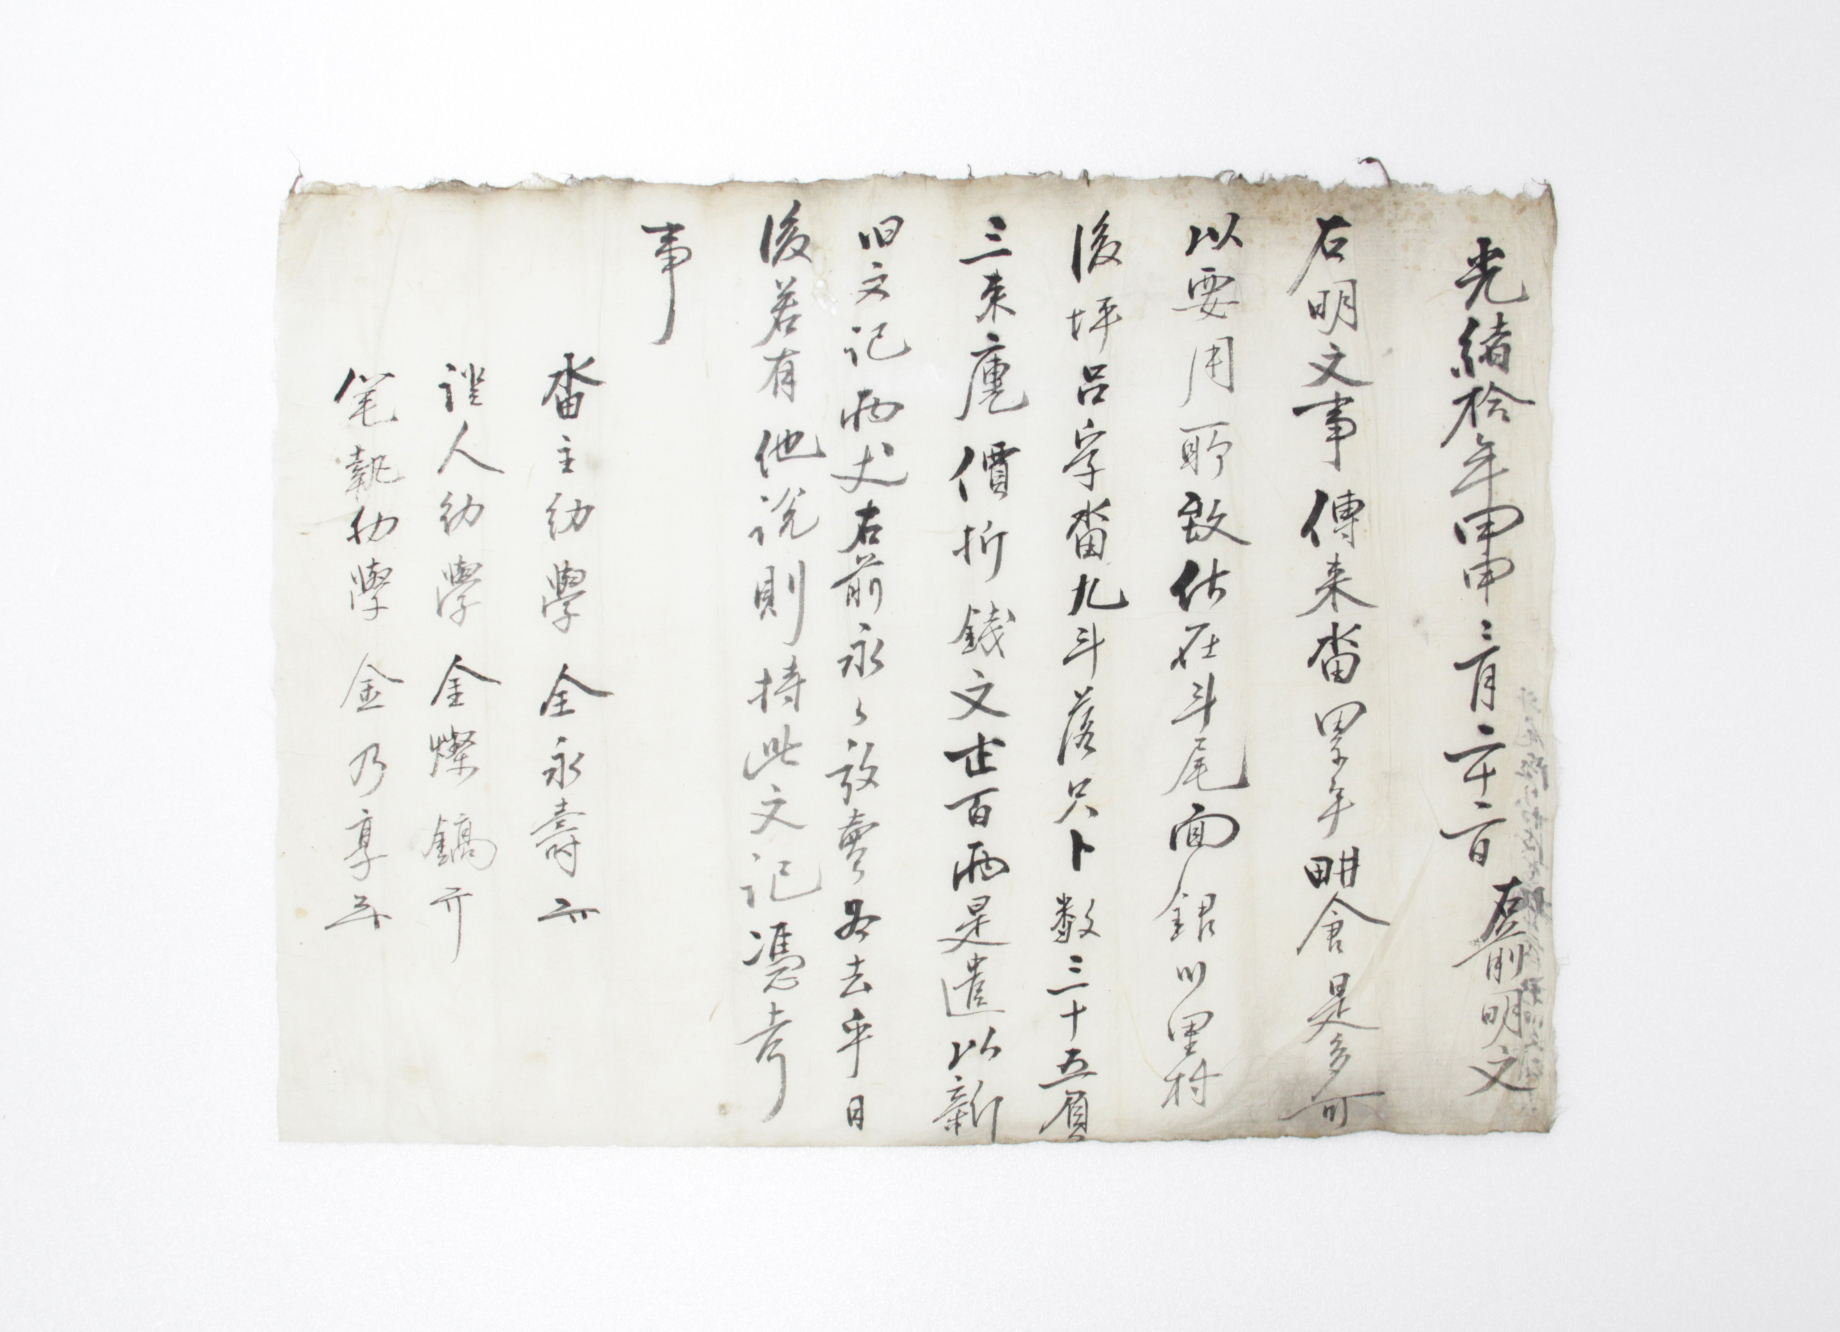 光緖拾年甲申二月二十二日 右前明文
右明文事傳來畓累年畊食是多可
以要用所致伏在斗尾面銀川里村
後坪呂字畓九斗落只卜数三十五負
三束庫價折錢文 百兩是遣以新
旧文記兩丈右前永々放賣爲去乎日
後若有他說則持此文記憑考
事
畓主幼學全永壽
證人幼學金燦鎬
筆執幼學金乃享